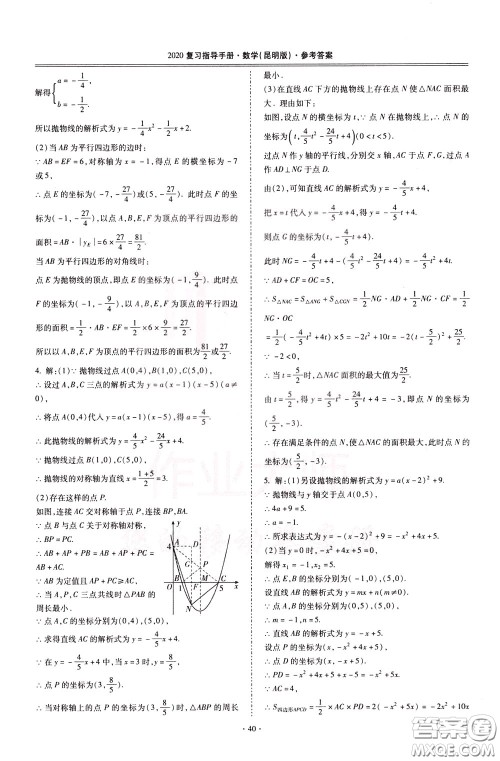 2020 复习指导手册·数学(昆明版)·参考答案
解得{a=-1/4, b=-1/2.
所以抛物线的解析式为 y=-1/4x²-1/2x+2.
(2)当 AB 为平行四边形的边时:
∵ AB=EF=6,对称轴为 x=-1,得 E 的横坐标为 -7
或5,
∴ 点 E 的坐标为(-7,-27/4)或(5,-27/4). 此时点 F 的坐
标为(-1,-27/4),以点 A,B,E,F 为顶点的平行四边形的
面积=AB·|yE|=6×27/4=81/2.
当 AB 为平行四边形的对角线时:
点 E 为抛物线的顶点,即点 E 的坐标为(-1,9/4). 此时
点 F 的坐标为(-1,-9/4),以点 A,B,E,F 为顶点的平行四边
形的面积=1/2·AB·EF=1/2×6×9/2=27/2.
所以以 A,B,E,F 为顶点的平行四边形的面积为81/2或27/2.
4. 解:(1)∵ 抛物线过点 A(0,4),B(1,0),C(5,0),
∴ 设过 A,B,C 三点的解析式为 y=a(x-1)(x-5)(a≠
0),
∴ 将点 A(0,4)代入 y=a(x-1)(x-5),得 a=4/5,
∴ 此抛物线的解析式为 y=4/5x²-24/5x+4.
∵ 抛物线过点 B(1,0),C(5,0),
∴ 抛物线的对称轴为直线 x=(1+5)/2=3.
(2)存在这样的点 P.
如图,连接 AC 交对称轴于点 P,连接 BP,AB.
∵ 点 B 与点 C 关于对称轴对称,
∴ BP=PC.
∴ AB+AP+PB=AB+AP+PC=
AB+AC.
∵ AB 为定值且 AP+PC≥AC,
∴ 当 A,P,C 三点共线时△PAB 的
周长最小.
∵ 点 A,C 的坐标分别为(0,4),(5,0),
∴ 求得直线 AC 的解析式为 y=-4/5x+4.
∵ 在 y=-4/5x+4 中,当 x=3 时,y=8/5,
∴ 点 P 的坐标为(3,8/5),
∴ 当对称轴上的点 P 的坐标为(3,8/5)时,△ABP 的周长
最小.
(3)在直线 AC 下方的抛物线上存在点 N 使△NAC 面积最
大. 理由如下:
如图,设点 N 的横坐标为 t,∵ 点 N 在抛物线上,∴ 点 N 的坐
标为(t,4/5t²-24/5t+4)(0<t<5).
过点 N 作 y 轴的平行线,分别交 x 轴,AC 于点 F,G,过点 A
作 AD⊥NG 于点 D.
由(2),可知直线 AC 的解析式为 y=-4/5x+4,
把 x=t 代入 y=-4/5x+4,得 y=-4/5t+4.
则点 G 的坐标为(t,-4/5t+4).
此时 NG=-4/5t+4-(4/5t²-24/5t+4)=-4/5t²+4t.
∵ AD+CF=OC=5,
∴ S△NAC=S△ANG+S△CGN=1/2NG·AD+1/2NG·CF=1/2
NG·OC
=1/2(-4/5t²+4t)×5=-2t²+10t=-2(t-5/2)²+25/2.
∵ -2<0,
∴ 当 t=5/2时,△NAC 面积的最大值为25/2.
由 t=5/2,得 y=4/5t²-24/5t+4=-3.
∴ 存在满足条件的点 N,使△NAC 的面积最大,此时点 N 的
坐标为(5/2,-3).
5. 解:(1)另设抛物线解析式为 y=a(x-2)²+9.
∵ 抛物线与 y 轴交于点 A(0,5),
∴ 4a+9=5.
∴ a=-1.
∴ 所求表达式为 y=-(x-2)²+9=-x²+4x+5.
(2)当 y=0 时,-x²+4x+5=0,
解得 x₁=-1,x₂=5.
∴ 点 E,B 的坐标分别为(-1,0),(5,0).
设直线 AB 的表达式为 y=mx+n(m≠0).
∴ m=-1,n=5.
∴ 直线 AB 的表达式为 y=-x+5.
设点 P 的坐标为(x,-x²+4x+5).
∴ 点 D 的坐标为(x,-x+5).
∴ PD=-x²+4x+5+x-5=-x²+5x.
∵ AC=4,
∴ S四边形APCD=1/2×AC×PD=2(-x²+5x)=-2x²+10x
·40·